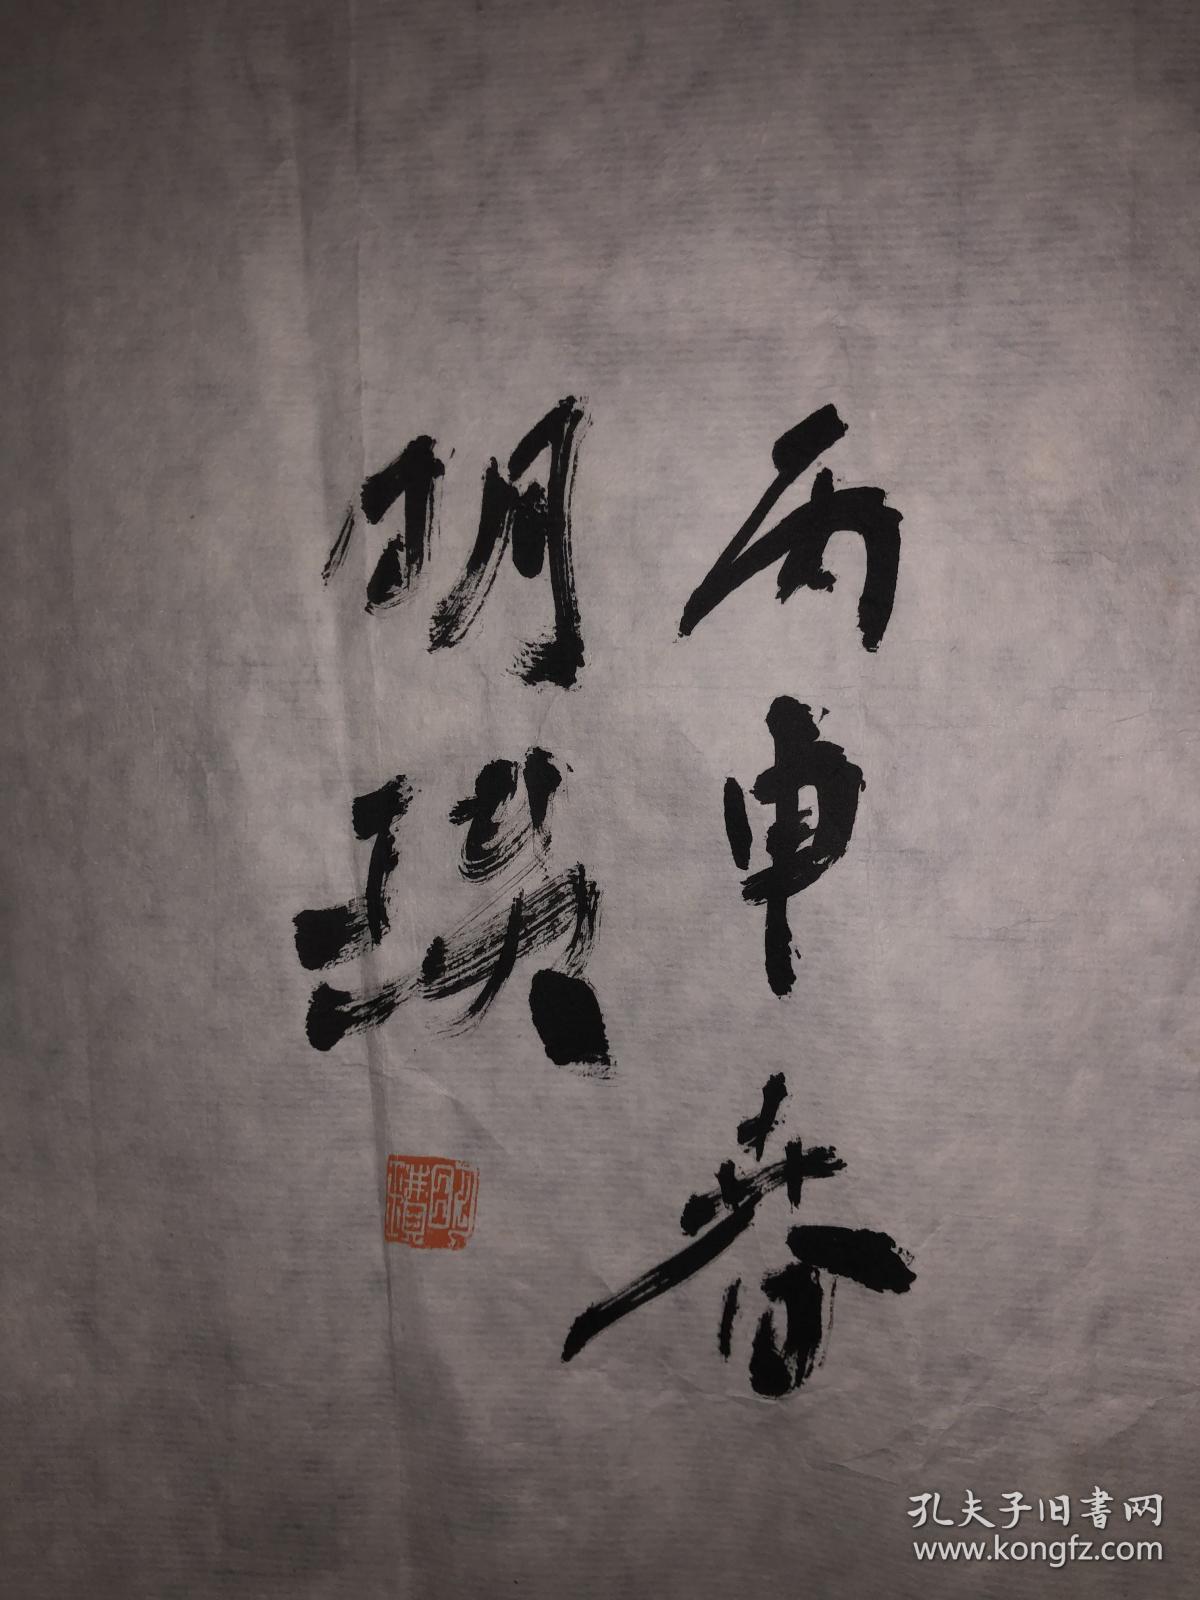 丙申春
明
孔夫子旧书网
www.kongfz.com